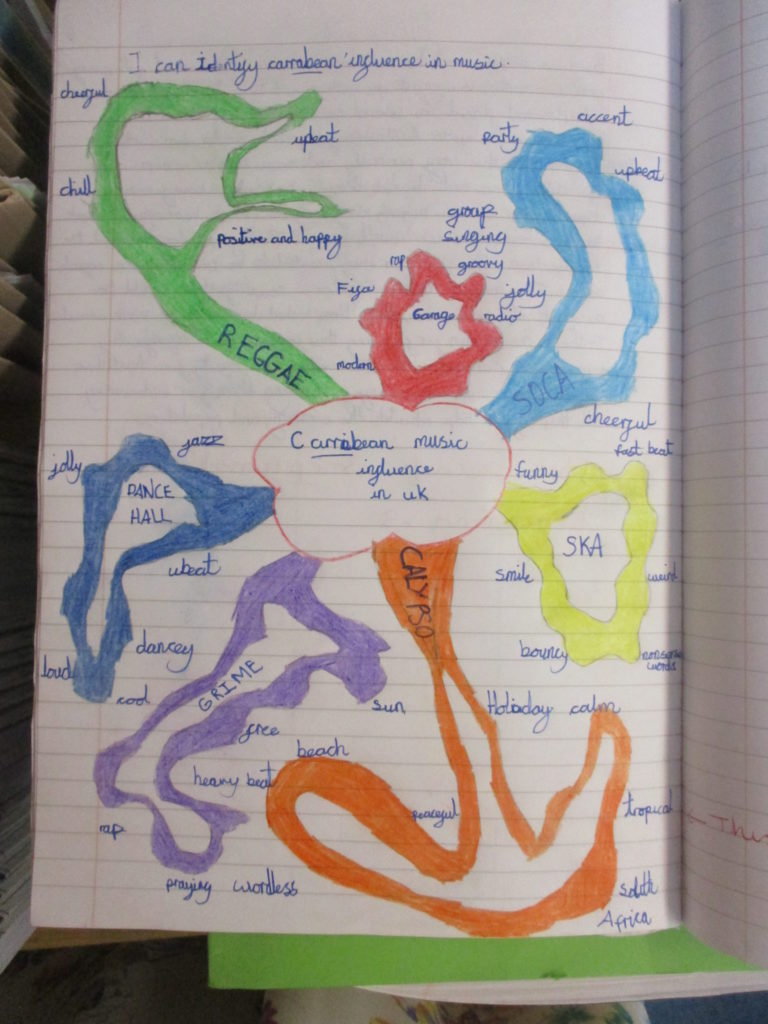 I can identify carrabean influence in music.
cheerful
upbeat
chill
positive and happy
REGGAE
accent
party
upbeat
group
singing
groovy
rap
Fifa
Garage
radio
modern
jolly
SOCA
cheerful
Carrabean music
influence
in uk
fast beat
funny
SKA
smile
weird
bouncy
nonsense
words
jazz
jolly
DANCE
HALL
ubeat
dancey
loud
cool
CALYPSO
GRIME
sun
free
heavy beat
rap
praying wordless
Holiday calm
beach
peaceful
tropical
south
Africa